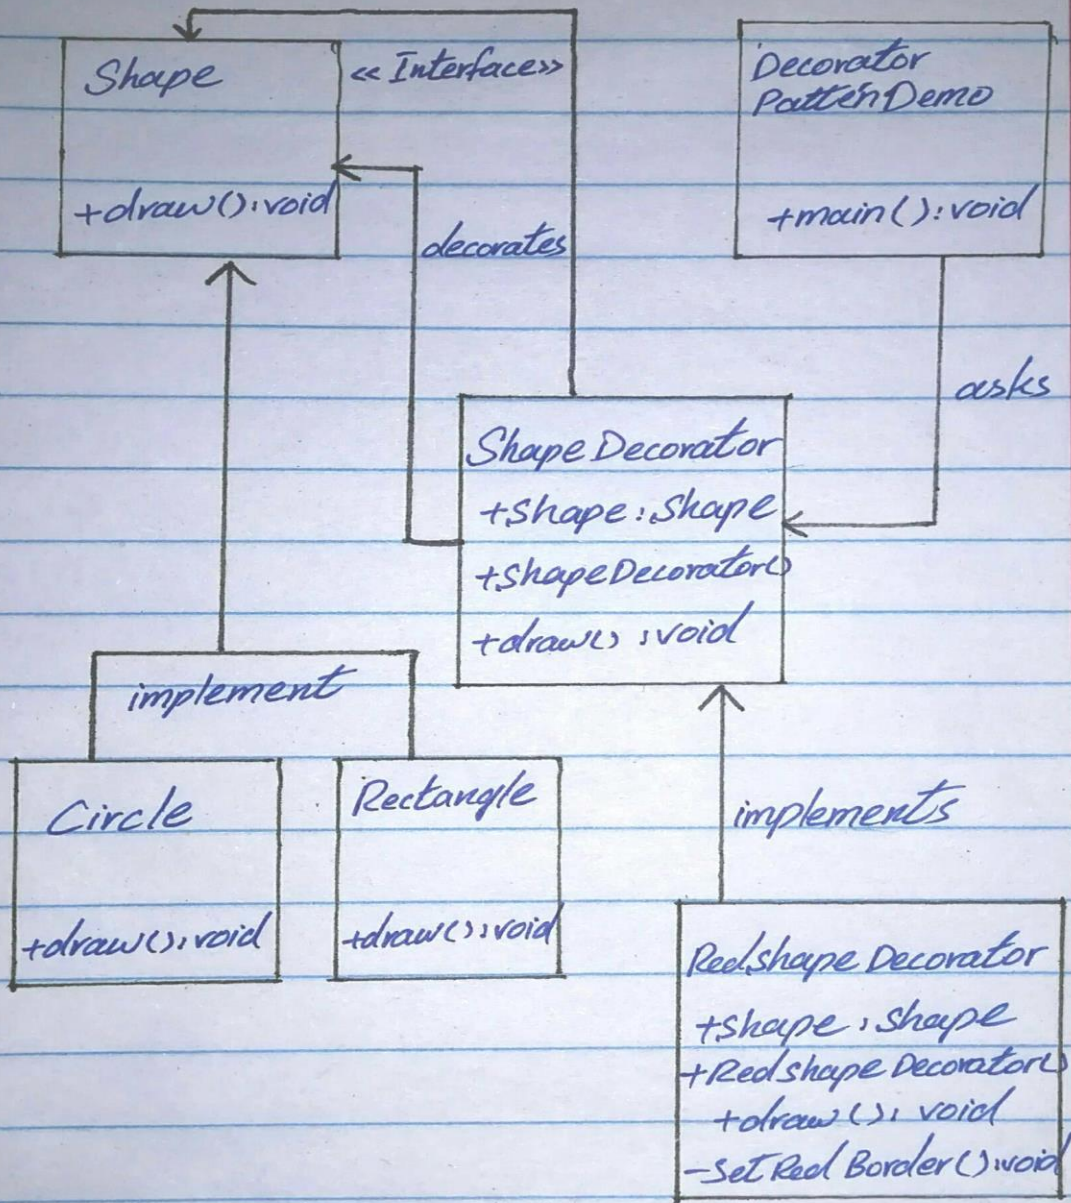 Shape
<< Interface >>
+draw():void
decorates
Decorator
PatternDemo
+main():void
asks
Shape Decorator
+Shape:Shape
+ShapeDecorator()
+draw():void
implement
Circle
+draw():void
Rectangle
+draw():void
implements
Redshape Decorator
+Shape:Shape
+Redshape Decorator()
+draw():void
-Set Red Border():void